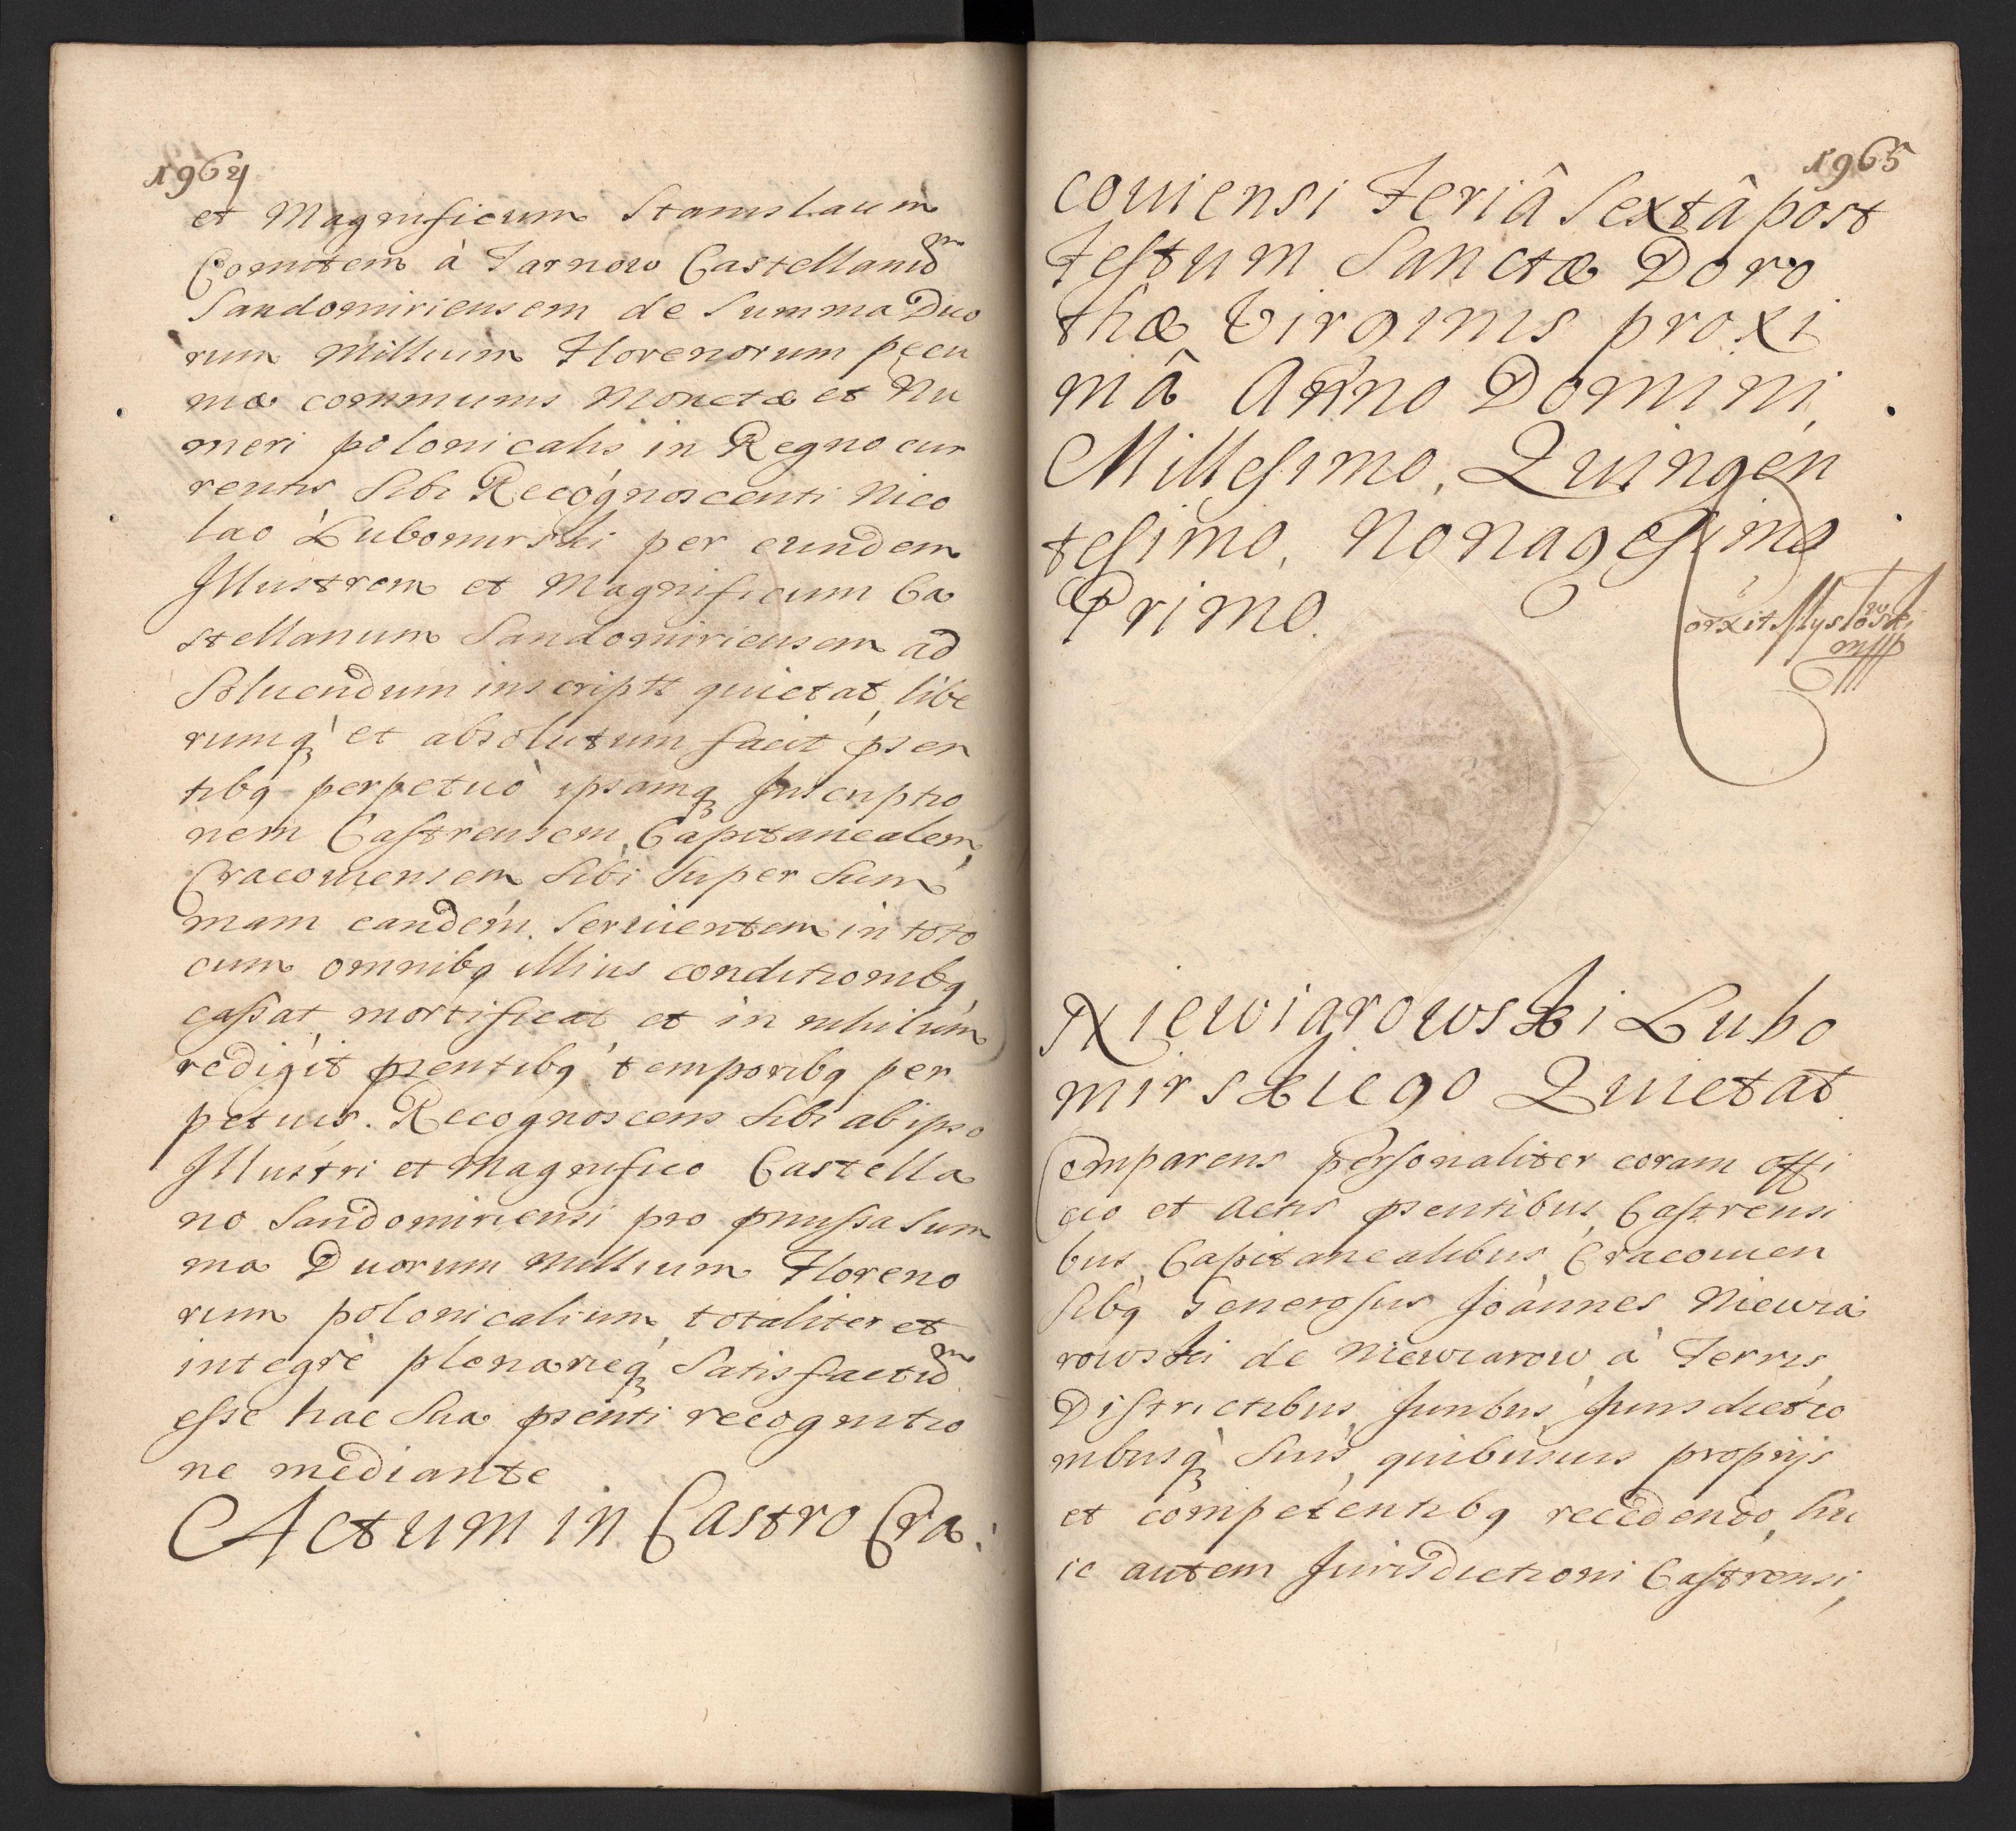 1964
et Magnificum Stanislaum
Comitem à Tarnow Castellanũ
Sandomiriensem de Summa Duo
rum Millium Florenorum pecu
niæ communis Monetæ et Nu
meri polonicalis in Regno cur
rentis Sibi Recognoscenti Nico
lao Lubomirski per eundem
Illustrem et Magnificum Ca
stellanum Sandomiriensem ad
Soluendum inscriptt quietat, libe
rumq́ et absolutum facit psen
tibq perpetuò ipsamq Inscriptio
nem Castrensem, Capitanealem,
Cracouiensem Sibi Super Sum
mam eandem Seruientem in toto
cum omnibq illius conditionibq
cassat mortificat et in nihilum
redigit psentibq temporibq per
petuis. Recognoscens Sibi ab ipso
Illustri et Magnifico Castella
no Sandomiriensi pro pmissa Sum
ma Duorum Millium Floreno
rum polonicalium, totaliter et
integrè plenarieq́ Satisfactũ
esse hac Sua psenti recognitio
ne mediante
Actum in Castro Cra:
1965
couiensi Feriâ Sextâ post
Festum Sanctæ Doro
thæ Virginis proxi
mâ Anno Domini
Millesimo, Quingen
tesimo, Nonagesimo
Primo.
Niewiarowski Lubo
mirskiego Quietat
Comparens personaliter coram offi
cio et Actis psentibus, Castrensi
bus, Capitanealibus, Cracouien
sibq Generosus Joannes Niewia
rowski de Niewiarow, à Terris,
Districtibus, Juribus, Jurisdictio
nibusq́ Suis, quibusuis proprijs
et competentibq recedendo, hu
ic autem Jurisdictioni Castrensi,